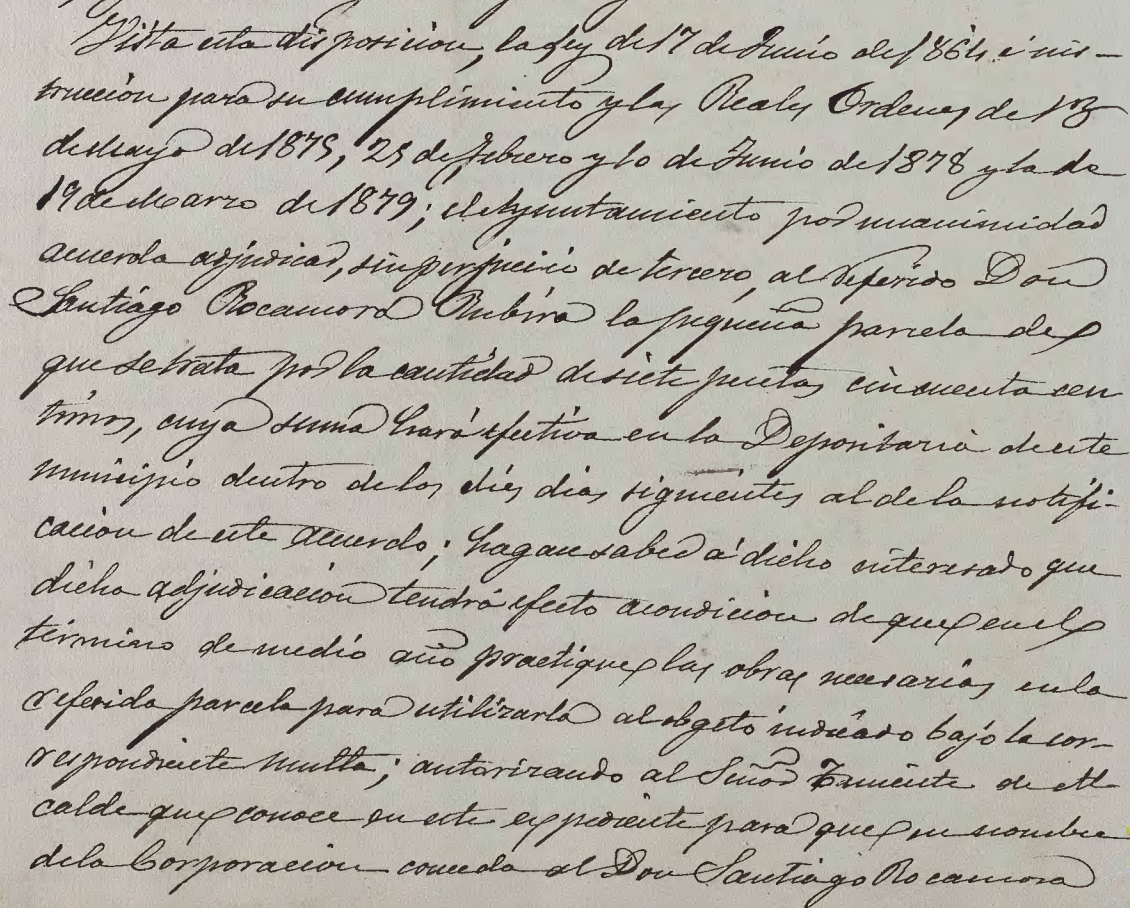 Vista esta disposicion, la Ley de 17 de Junio de 1864 é ins-
truccion para su cumplimiento y las Reales Ordenes de 13
de Mayo de 1875, 25 de Febrero y 10 de Junio de 1878 y la de
19 de Marzo de 1879; el Ayuntamiento por unanimidad
acuerda adjudicar, sin perjuicio de tercero, al referido Don
Santiago Rocamora Rubira la pequeña parcela de
que se trata por la cantidad de siete pesetas cincuenta cen
timos, cuya suma hará efectiva en la Depositaria de este
municipio dentro de los diez dias siguientes al de la notifi-
cacion de este acuerdo; hagan saber á dicho interesado que
dicha adjudicacion tendrá efecto acondicion de que en el
término de medio año practique las obras necesarias en la
referida parcela para utilizarla al obgeto indicado bajo la cor-
respondiente multa; autorizando al Señor Teniente de Al
calde que conoce en este expediente para que en nombre
de la Corporacion conceda al Don Santiago Rocamora